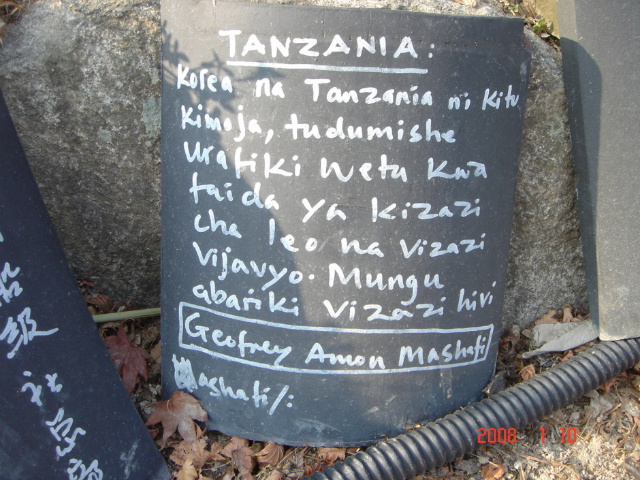 TANZANIA:
Korea na Tanzania ni Kitu
Kimoja, tudumishe
Urafiki wetu Kwa
faida ya kizazi
cha leo na vizazi
vijavyo. Mungu
abariki vizazi hivi
Geofrey Amon Mashati
Mashati/:
級
2008 1 10